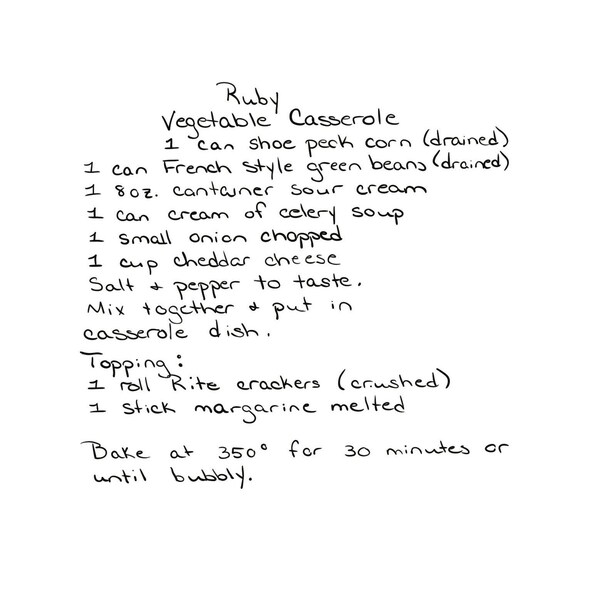 Ruby
Vegetable Casserole
1 can shoe peck corn (drained)
1 can French style green beans (drained)
1 8oz. container sour cream
1 can cream of celery soup
1 small onion chopped
1 cup cheddar cheese
Salt & pepper to taste.
Mix together & put in
casserole dish.
Topping:
1 roll Rite crackers (crushed)
1 stick margarine melted
Bake at 350° for 30 minutes or
until bubbly.